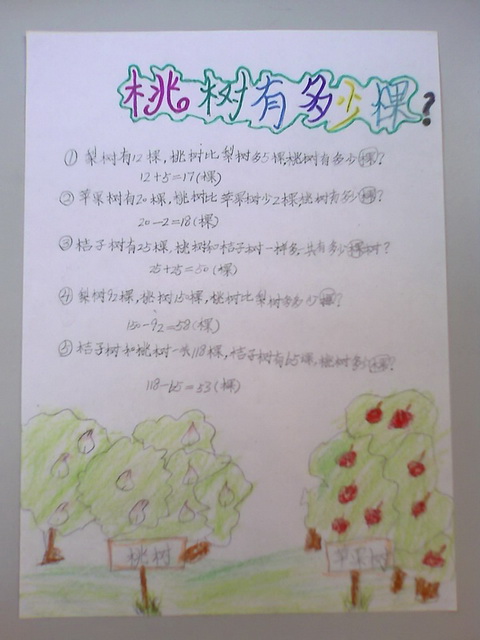 桃树有多少棵?
①梨树有12棵,桃树比梨树多5棵,桃树有多少棵?
12+5=17(棵)
②苹果树有20棵,桃树比苹果树少2棵,桃树有多少棵?
20-2=18(棵)
③桔子树有25棵,桃树和桔子树一样多,共有多少棵树?
25+25=50(棵)
④梨树92棵,桃树150棵,桃树比梨树多多少棵?
150-92=58(棵)
⑤桔子树和桃树一共118棵,桔子树有65棵,桃树多少棵?
118-65=53(棵)
桃树
苹果树